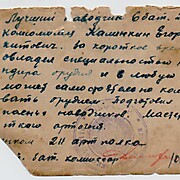 Лучший наводчик 6 бат.
комсомолец Калинкин Егор
китович. За короткое
овладел специальностью
дира орудия и в любую
может самостоятельно кома
вать орудием. Подготовил
пасных наводчиков. Мастер
ткого артогня.
211 арт полка
бат. комиссар